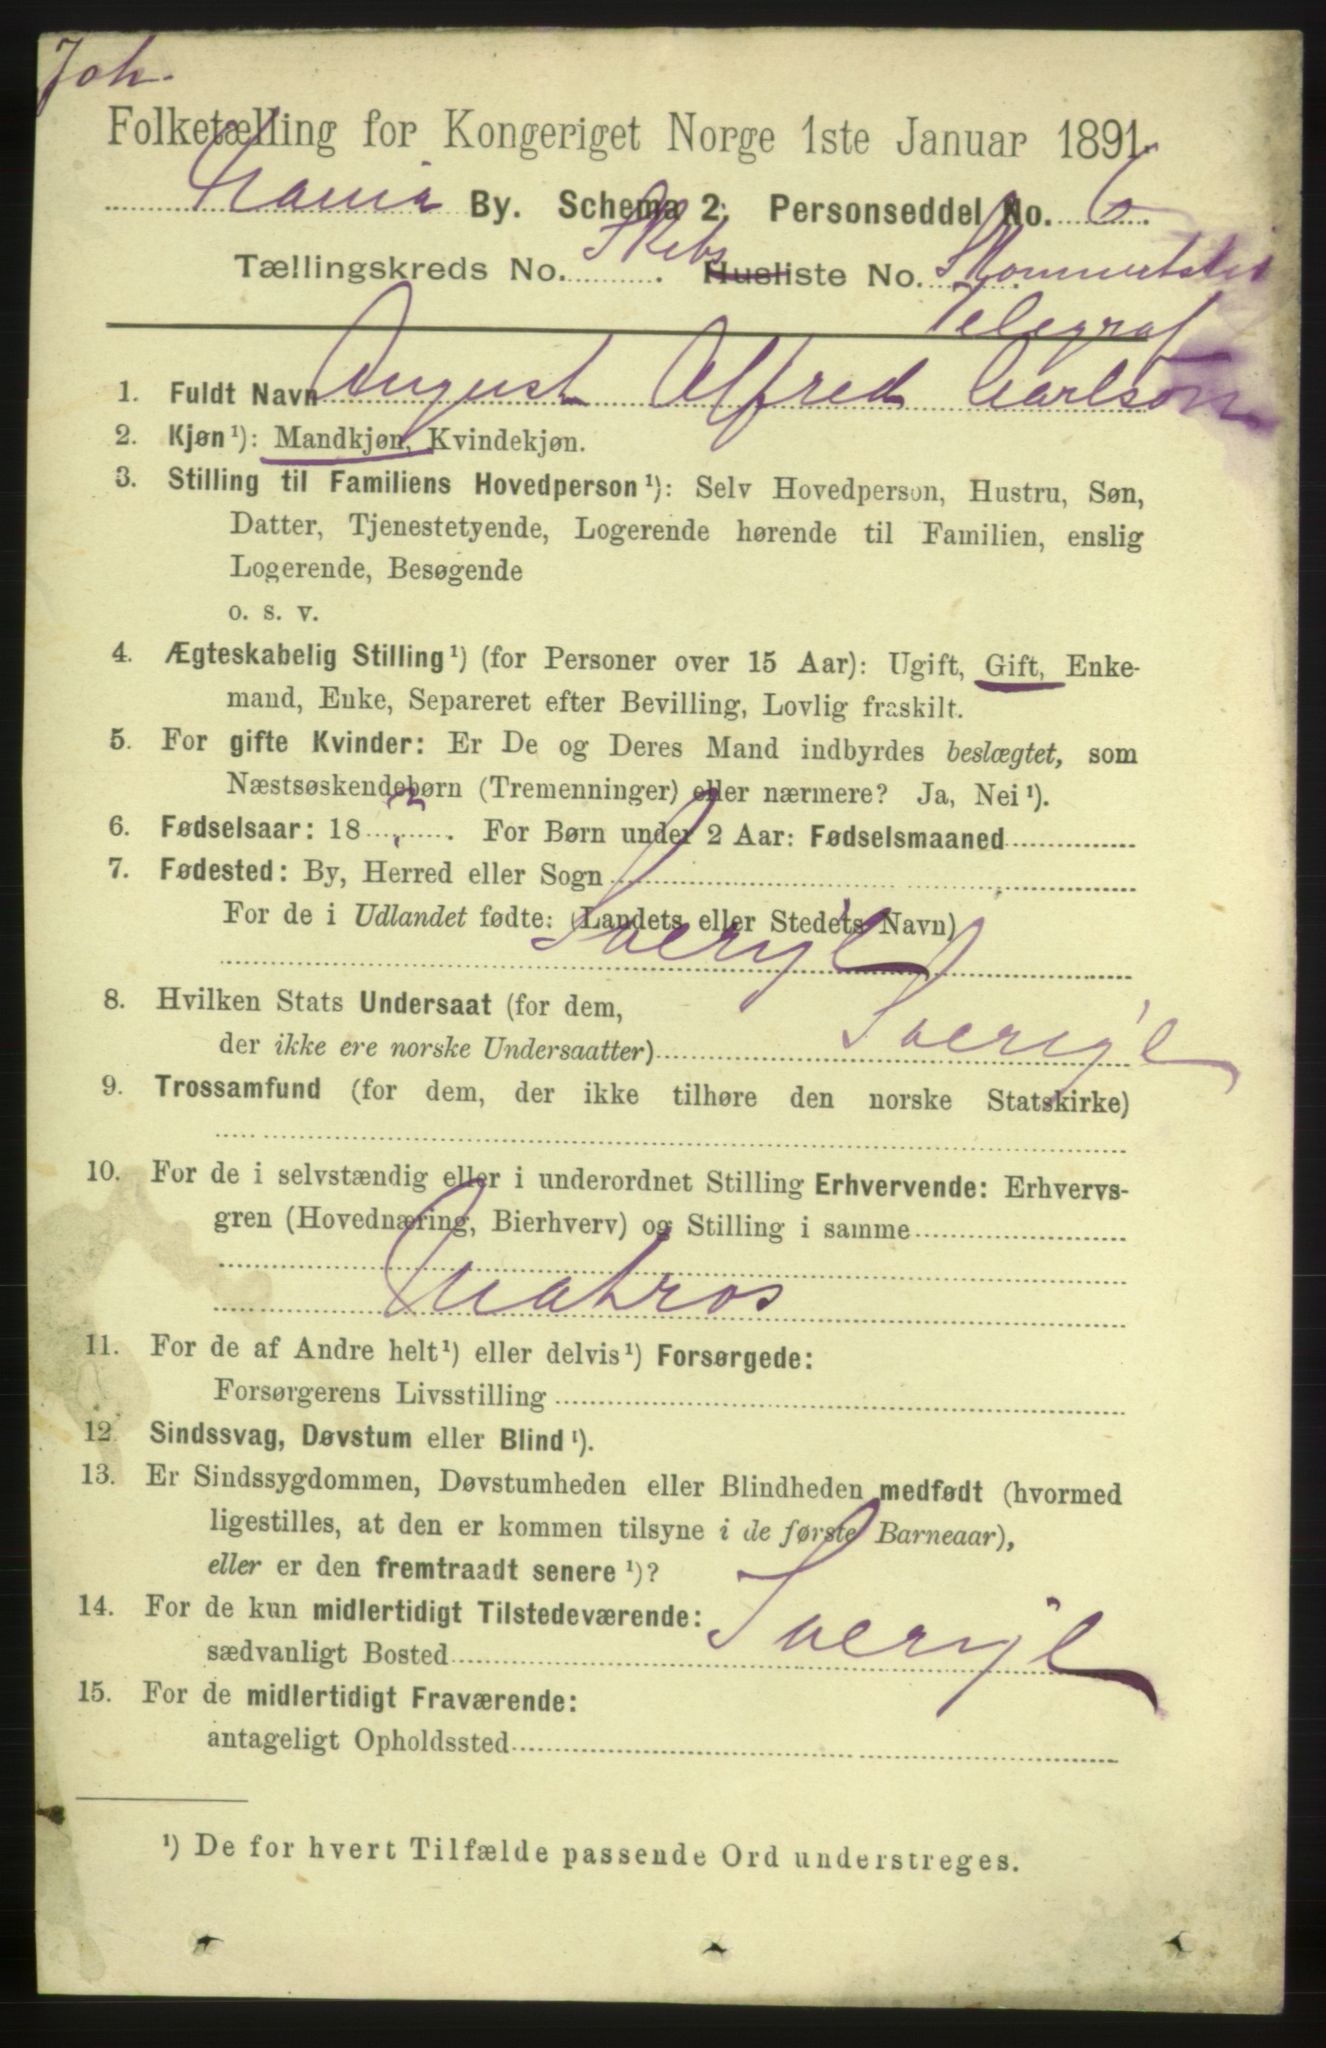 Joh.
Folketælling for Kongeriget Norge 1ste Januar 1891.
By. Schema 2. Personseddel No. 6.
Tællingskreds No. Skibs Husliste No.
Telegraf
1. Fuldt Navn August Alfred Carlson
2. Kjøn¹): Mandkjøn, Kvindekjøn.
3. Stilling til Familiens Hovedperson¹): Selv Hovedperson, Hustru, Søn,
Datter, Tjenestetyende, Logerende hørende til Familien, enslig
Logerende, Besøgende
o. s. v.
4. Ægteskabelig Stilling¹) (for Personer over 15 Aar): Ugift, Gift, Enke-
mand, Enke, Separeret efter Bevilling, Lovlig fraskilt.
5. For gifte Kvinder: Er De og Deres Mand indbyrdes beslægtet, som
Næstsøskendebørn (Tremenninger) eller nærmere? Ja, Nei¹).
6. Fødselsaar: 18 ? . For Børn under 2 Aar: Fødselsmaaned
7. Fødested: By, Herred eller Sogn
For de i Udlandet fødte: (Landets eller Stedets Navn)
Sverige
8. Hvilken Stats Undersaat (for dem,
der ikke ere norske Undersaatter) Sverige
9. Trossamfund (for dem, der ikke tilhøre den norske Statskirke)
10. For de i selvstændig eller i underordnet Stilling Erhvervende: Erhvervs-
gren (Hovednæring, Bierhverv) og Stilling i samme
Matros
11. For de af Andre helt¹) eller delvis¹) Forsørgede:
Forsørgerens Livsstilling
12. Sindssvag, Døvstum eller Blind¹).
13. Er Sindssygdommen, Døvstumheden eller Blindheden medfødt (hvormed
ligestilles, at den er kommen tilsyne i de første Barneaar),
eller er den fremtraadt senere¹)?
14. For de kun midlertidigt Tilstedeværende:
sædvanligt Bosted Sverige
15. For de midlertidigt Fraværende:
antageligt Opholdssted
¹) De for hvert Tilfælde passende Ord understreges.